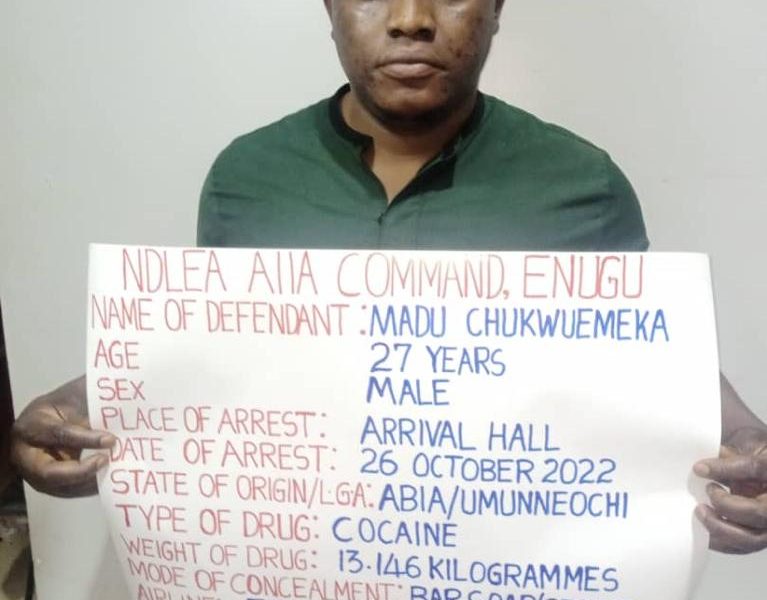 NDLEA AIIA COMMAND, ENUGU
NAME OF DEFENDANT: MADU CHUKWUEMEKA
AGE 27 YEARS
SEX MALE
PLACE OF ARREST: ARRIVAL HALL
DATE OF ARREST: 26 OCTOBER 2022
STATE OF ORIGIN/L.GA: ABIA/UMUNNEOCHI
TYPE OF DRUG: COCAINE
WEIGHT OF DRUG: 13.146 KILOGRAMMES
MODE OF CONCEALMENT: BAR